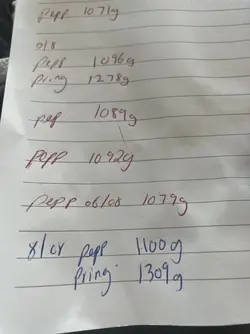 pepp 1071g
pepp 1096g
pring 1278g
pep 1089g
pepp 1092g
pepp 06/08 1079g
8/08 pepp 1100g
pring. 1309g